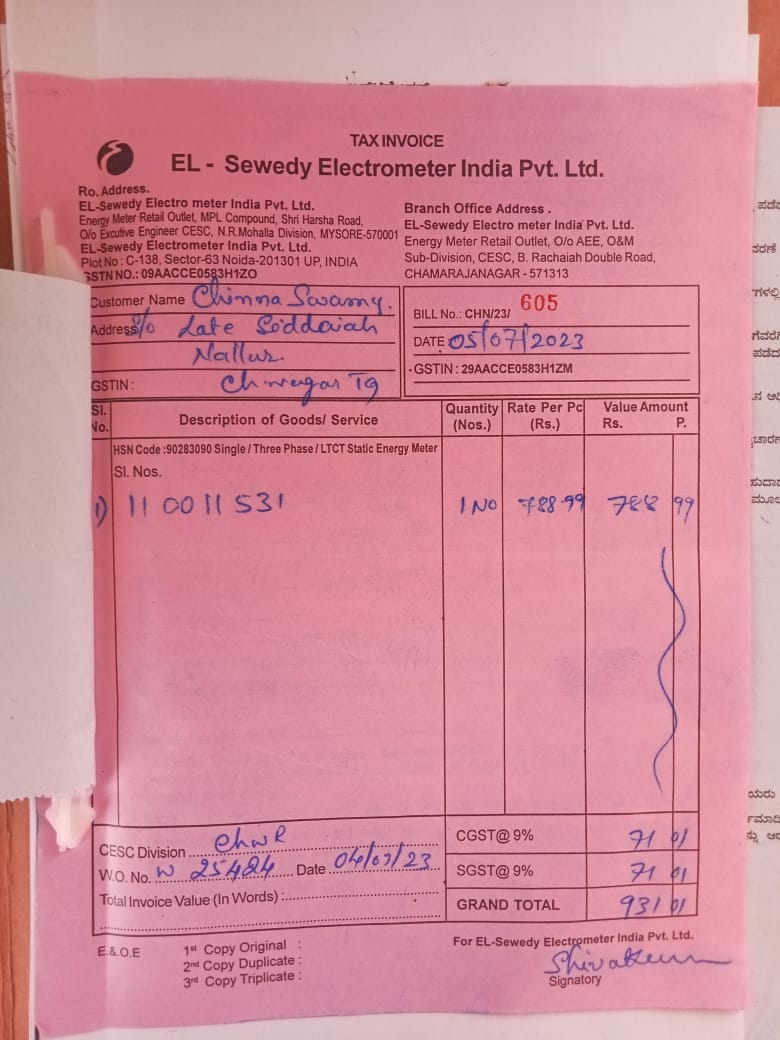 TAX INVOICE
EL - Sewedy Electrometer India Pvt. Ltd.
Ro. Address.
EL-Sewedy Electro meter India Pvt. Ltd.
Energy Meter Retail Outlet, MPL Compound, Shri Harsha Road,
O/o Excutive Engineer CESC, N.R.Mohalla Division, MYSORE-570001
EL-Sewedy Electrometer India Pvt. Ltd.
Plot No : C-138, Sector-63 Noida-201301 UP, INDIA
GSTN NO.: 09AACCE0583H1ZO
Branch Office Address .
EL-Sewedy Electro meter India Pvt. Ltd.
Energy Meter Retail Outlet, O/o AEE, O&M
Sub-Division, CESC, B. Rachaiah Double Road,
CHAMARAJANAGAR - 571313
Customer Name Chinna Swamy.
Address S/o Late Siddaiah
Nallur
GSTIN : Ch nagar Tq
BILL No.: CHN/23/ 605
DATE : 05/07/2023
GSTIN : 29AACCE0583H1ZM
Sl. No. Description of Goods/ Service Quantity (Nos.) Rate Per Pc (Rs.) Value Amount Rs. P.
HSN Code :90283090 Single / Three Phase / LTCT Static Energy Meter
Sl. Nos.
1) 110011531 1 No 788.99 788 99
CESC Division ChnR
W.O. No. W 25424 Date 04/07/23
Total Invoice Value (In Words) :
CGST@ 9% 71 01
SGST@ 9% 71 01
GRAND TOTAL 931 01
E.& O.E
1st Copy Original :
2nd Copy Duplicate :
3rd Copy Triplicate :
For EL-Sewedy Electrometer India Pvt. Ltd.
Shivakum
Signatory